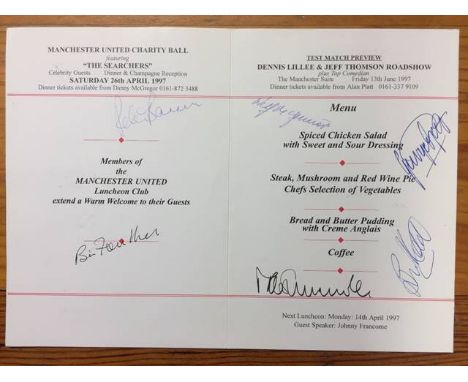 MANCHESTER UNITED CHARITY BALL
featuring
"THE SEARCHERS"
Celebrity Guests Dinner & Champagne Reception
SATURDAY 26th APRIL 1997
Dinner tickets available from Danny McGregor 0161-872 3488
Members of
the
MANCHESTER UNITED
Luncheon Club
extend a Warm Welcome to their Guests
TEST MATCH PREVIEW
DENNIS LILLEE & JEFF THOMSON ROADSHOW
plus Top Comedian
The Manchester Suite Friday 13th June 1997
Dinner tickets available from Alan Platt 0161-337 9109
Menu
Spiced Chicken Salad
with Sweet and Sour Dressing
Steak, Mushroom and Red Wine Pie
Chefs Selection of Vegetables
Bread and Butter Pudding
with Creme Anglais
Coffee
Next Luncheon: Monday: 14th April 1997
Guest Speaker: Johnny Francome